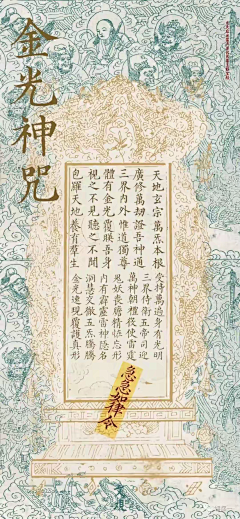 金光神咒
天地玄宗萬炁本根
廣修萬劫證吾神通
三界內外惟道獨尊
體有金光覆映吾身
視之不見聽之不聞
包羅天地養育羣生
受持萬遍身有光明
三界侍衛五帝司迎
萬神朝禮役使雷霆
鬼妖喪膽精怪忘形
內有霹靂雷神隱名
洞慧交徹五炁騰騰
金光速現覆護真形
急急如律令